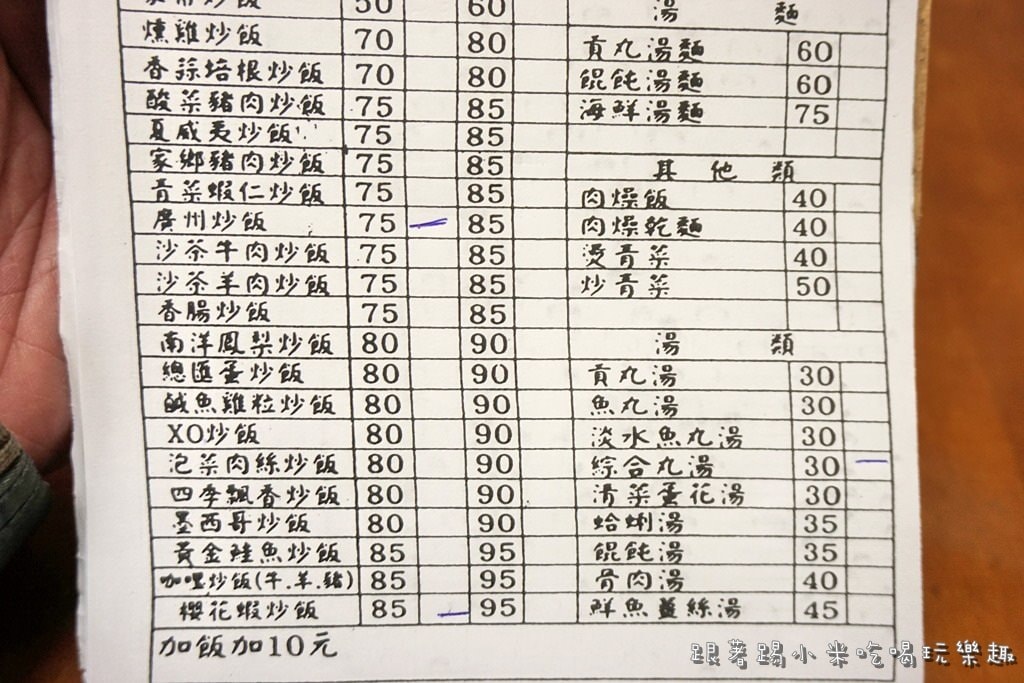 炒飯 50 60 湯 麵
燻雞炒飯 70 80 貢丸湯麵 60
香蒜培根炒飯 70 80 餛飩湯麵 60
酸菜豬肉炒飯 75 85 海鮮湯麵 75
夏威夷炒飯 75 85
家鄉豬肉炒飯 75 85 其他類
青菜蝦仁炒飯 75 85 肉燥飯 40
廣州炒飯 75 85 肉燥乾麵 40
沙茶牛肉炒飯 75 85 燙青菜 40
沙茶羊肉炒飯 75 85 炒青菜 50
香腸炒飯 75 85
南洋鳳梨炒飯 80 90 湯 類
總匯蛋炒飯 80 90 貢丸湯 30
鹹魚雞粒炒飯 80 90 魚丸湯 30
XO炒飯 80 90 淡水魚丸湯 30
泡菜肉絲炒飯 80 90 綜合丸湯 30
四季飄香炒飯 80 90 清菜蛋花湯 30
墨西哥炒飯 80 90 蛤蜊湯 35
黃金鮭魚炒飯 85 95 餛飩湯 35
咖哩炒飯(牛.羊.豬) 85 95 骨肉湯 40
櫻花蝦炒飯 85 95 鮮魚薑絲湯 45
加飯加10元
跟著踢小米吃喝玩樂趣